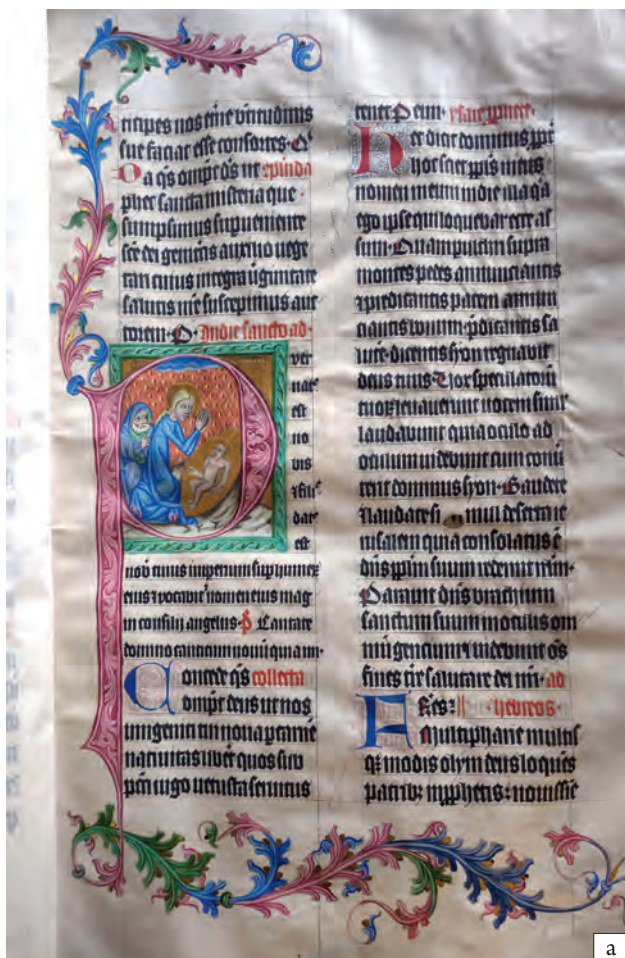 ticipes nos eiue
sue faciat esse consortes.
Da q̄s omp̄ ds ut repinda
pliter sancta misteria que
sumpsimus
sce dei genitricis auxilio vege
tari cuius integra
salutis nr̄e suscepimus auc
torem. In die sancto ad
Puer
nat
est
no
vis
filiꝰ
dat
est
nob cuius imperium sup humer
eius vocabit nomen eius mag
ni consilii angelus. Cantate
domino canticum novum quia mi
Concede q̄s collecta
omp̄ deus ut nos
unigeniti tui nova p carnē
nativitas liberet quos sub
pcti iugo vetusta servitus
tenet P eun. ysaie pphete.
Hec dicit dominus
hoc sciet pplꝰ meus
nomen meum in die illa qa
ego ipse qui loquebar ecce as
sum. Quam pulcri supra
montes pedes annunciantis
et predicantis pacem annun
ciantis bonum. pdicantis sa
lutē. dicentis syon regnabit
deus tuus. Vox speculatorū
tuoꝝ levaverunt vocem simul
laudabunt quia oculo ad
oculum videbunt cum conū
tent dominus syon. Gaudete
et laudate si mul deserta ie
rusalem quia consolatus ē
dn̄s pplm suum redemit
Paravit dn̄s brachium
sanctum suum in oculis om
nium gencium et videbunt oēs
fines tre salutare dei nri. ad
Fr̄es: hebreos.
Multiphariē multis
qꝫ modis olym deus loquēs
patribꝫ in pphetis: novissīe
a